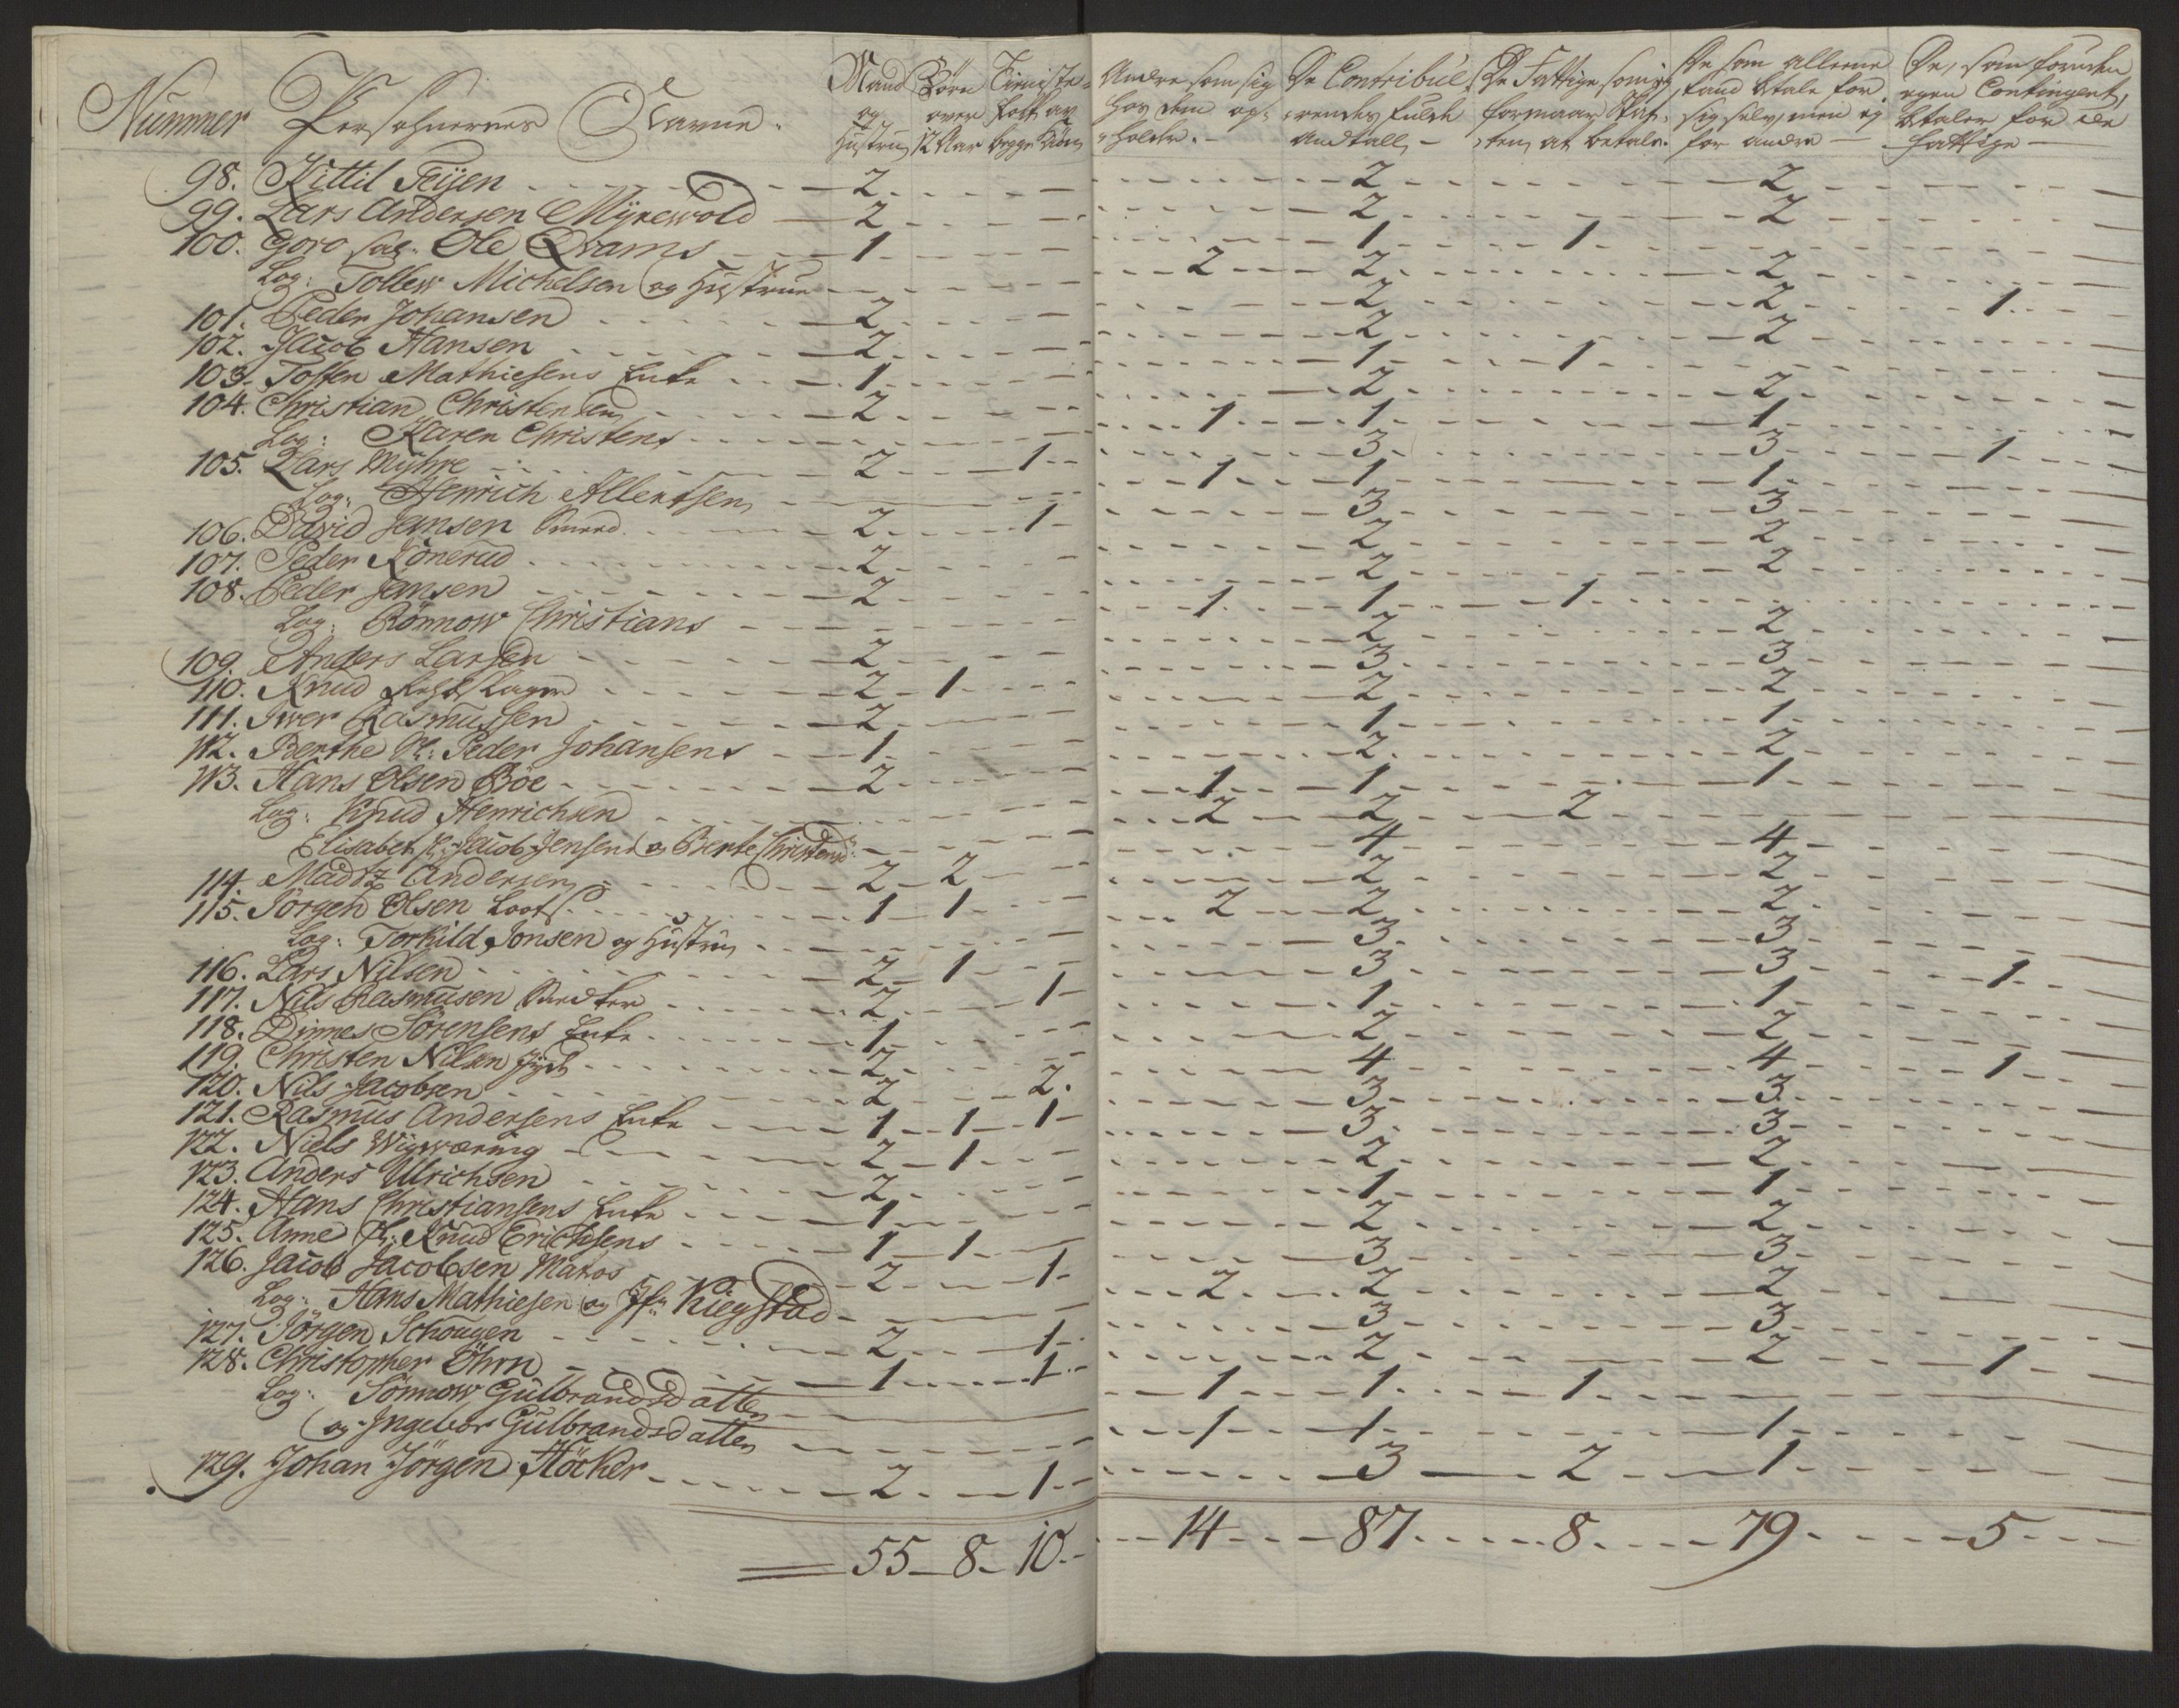 Nummer Persohnernes Navne. Mand og Hustru Børn over 12 Aar Tieniste-Folk af begge Kiøn Andre som sig hos dem op-holder. De Contribuerendes fulde Andtall De Fattige som ej formaar Skatten at betale. De som allene kand betale for sig selv, men ej for andre De, som foruden egen Contingent, betaler for de Fattige
98. Kittil Feijen 2 2 2
99. Lars Andersen Myrewold 2 2 2
100. Goro Sal. Ole Qvams 1 1 1
Log: Tollew Michelsen og Hustrue 2 2 2
101. Peder Johansen 2 2 2 1
102. Jacob Hansen 2 2 2
103. Tosten Mathiesens Enke 1 1 1
104. Christian Christensen 2 2 2
Log: Karen Christens 1 1 1
105. Lars Muhre 2 1 3 3 1
Log: Henrich Allertsen 1 1 1
106. David Jansen Smed 2 1 3 3
107. Peder Konerud 2 2 2
108. Peder Jansen 2 2 2
Log: Rönnow Christians 1 1 1
109. Anders Larsen 2 2 2
110. Knud 2 1 3 3
111. Iver Rasmussen 2 2 2
112. Berthe Sl: Peder Johansens 1 1 1
113. Hans Olsen Böe 2 2 2
Log: Knud Henrichsen 1 1 1
Elisabet Sl: Jacob Jensens og Berte Christensd: 2 2 2
114. Madtz Andersen 2 2 4 4
115. Jörgen Olsen Loots 1 1 2 2
Log: Torkild Jonsen og Hustru 2 2 2
116. Lars Nilsen 2 1 3 3
117. Nils Rasmusen 2 1 3 3 1
118. Dinnes Sörensens Enke 1 1 1
119. Christen Nilsen Jyde 2 2 2
120. Nils Jacobsen 2 2. 4 4 1
121. Rasmus Andersens Enke 1 1 1 3 3
122. Niels Wigwæring 2 1 3 3
123. Anders Ulrichsen 2 2 2
124. Hans Christiansens Enke 1 1 1
125. Anne Sl: Knud Erichsens 1 1 2 2
126. Jacob Jacobsen Matros 2 1 3 3
Log: Hans Mathiesen og Jfr: Kiegstad 2 2 2
127. Jörgen Schougen 2 1 3 3
128. Christopher Öhrn 1 1 2 2 1
Log: Sönnow Gulbrandsdatter 1 1 1
og Ingebor Gulbrandsdatter 1 1 1
129. Johan Jörgen Höcker 2 1 3 2 1
55 8 10 14 87 8 79 5